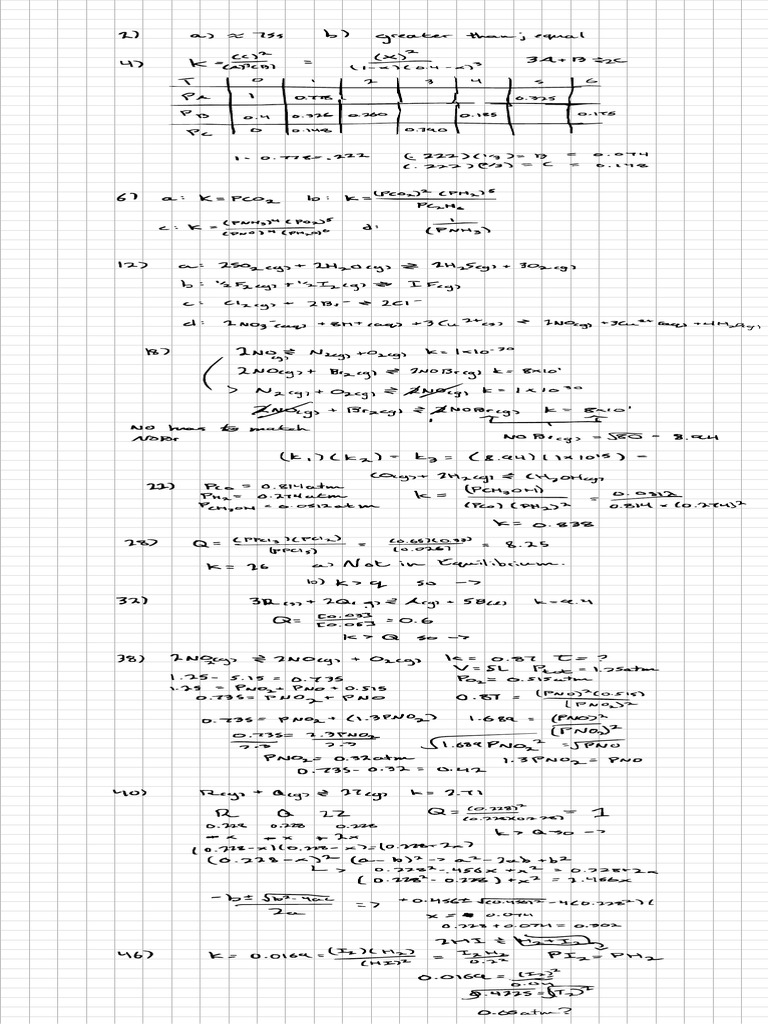 2) a) ≈ 75s b) greater than; equal
4) K = (C)² / (A)³(B) = (x)² / (1-x)(0.4-x)³ 3A + B ⇌ 2C
T 0 1 2 3 4 5 6
PA 1 0.778 0.325
PB 0.4 0.326 0.260 0.185 0.175
PC 0 0.148 0.390
1 - 0.778 = .222 (.222)(1/3) = B = 0.074
(.222)(2/3) = C = 0.148
6) a: K = PCO₂ b: K = (PCO₂)² (PH₂)⁵ / PC₂H₆
c: K = (PNH₃)⁴ (PO₂)⁵ / (PNO)⁴ (PH₂O)⁶ d: 1 / (PNH₃)
12) a: 2SO₂(g) + 2H₂O(g) ⇌ 2H₂S(g) + 3O₂(g)
b: ½F₂(g) + ½I₂(g) ⇌ IF(g)
c: Cl₂(g) + 2Br⁻ ⇌ 2Cl⁻
d: 2NO₃⁻(aq) + 8H⁺(aq) + 3Cu(s) ⇌ 2NO(g) + 3Cu²⁺(aq) + 4H₂O(g)
18) 2NO(g) ⇌ N₂(g) + O₂(g) K = 1×10⁻³⁰
2NO(g) + Br₂(g) ⇌ 2NOBr(g) K = 8×10¹
> N₂(g) + O₂(g) ⇌ 2NO(g) K = 1×10³⁰
2NO(g) + Br₂(g) ⇌ 2NOBr(g) K = 8×10¹
NO has to match
NOBr
NOBr(g) = √80 = 8.94
(K₁)(K₂) = K₃ = (8.94)(1×10¹⁵) =
CO(g) + 2H₂(g) ⇌ CH₃OH(g)
22) PCO = 0.814atm
PH₂ = 0.274atm
PCH₃OH = 0.0512atm
K = (PCH₃OH) / (PCO)(PH₂)² = 0.0512 / 0.814 × (0.274)²
K = 0.838
28) Q = (PPCl₃)(PCl₂) / (PPCl₅) = / (0.026) = 8.25
K = 26 a) Not in Equilibrium.
b) K > q so →
32) 3R(s) + 2Q(g) ⇌ A(g) + 5B(l) K = 9.4
Q = = 0.6
K > Q so →
38) 2NO₂(g) ⇌ 2NO(g) + O₂(g) K = 0.87 T = ?
V = 5L Ptot = 1.25atm
1.25 - 5.15 = 0.735 PO₂ = 0.515atm
1.25 = PNO₂ + PNO + 0.515
0.735 = PNO₂ + PNO 0.87 = (PNO)²(0.515) / (PNO₂)²
0.735 = PNO₂ + (1.3PNO₂) 1.689 = (PNO)² / (PNO₂)²
0.735 / 2.3 = 2.3PNO₂ / 2.3 √1.689PNO₂² = √PNO
PNO₂ = 0.32atm 1.3PNO₂ = PNO
0.735 - 0.32 = 0.42
40) R(g) + Q(g) ⇌ 2Z(g) K = 2.71
R Q 2Z Q = (0.228)² / (0.228×0.228) = 1
0.228 0.228 0.228 K > Q so →
-x -x +2x
(0.228-x)(0.228-x) = (0.228+2x)
(0.228-x)² (a-b)² → a² - 2ab + b²
↳ 0.228² - .456x + x² = 0.228+2x
(0.228² - 0.228) + x² = 2.466x
-b ± √b² - 4ac / 2a => +0.456 ± - 4(0.228²)(
x = 0.074
0.228 + 0.074 = 0.302
2HI ⇌ H₂ + I₂
46) K = 0.0169 = (I₂)(H₂) / (HI)² = I₂H₂ / 0.2² PI₂ = PH₂
0.0169 = (I₂)² / 0.04
√0.4225 = √(I₂)²
0.66atm?